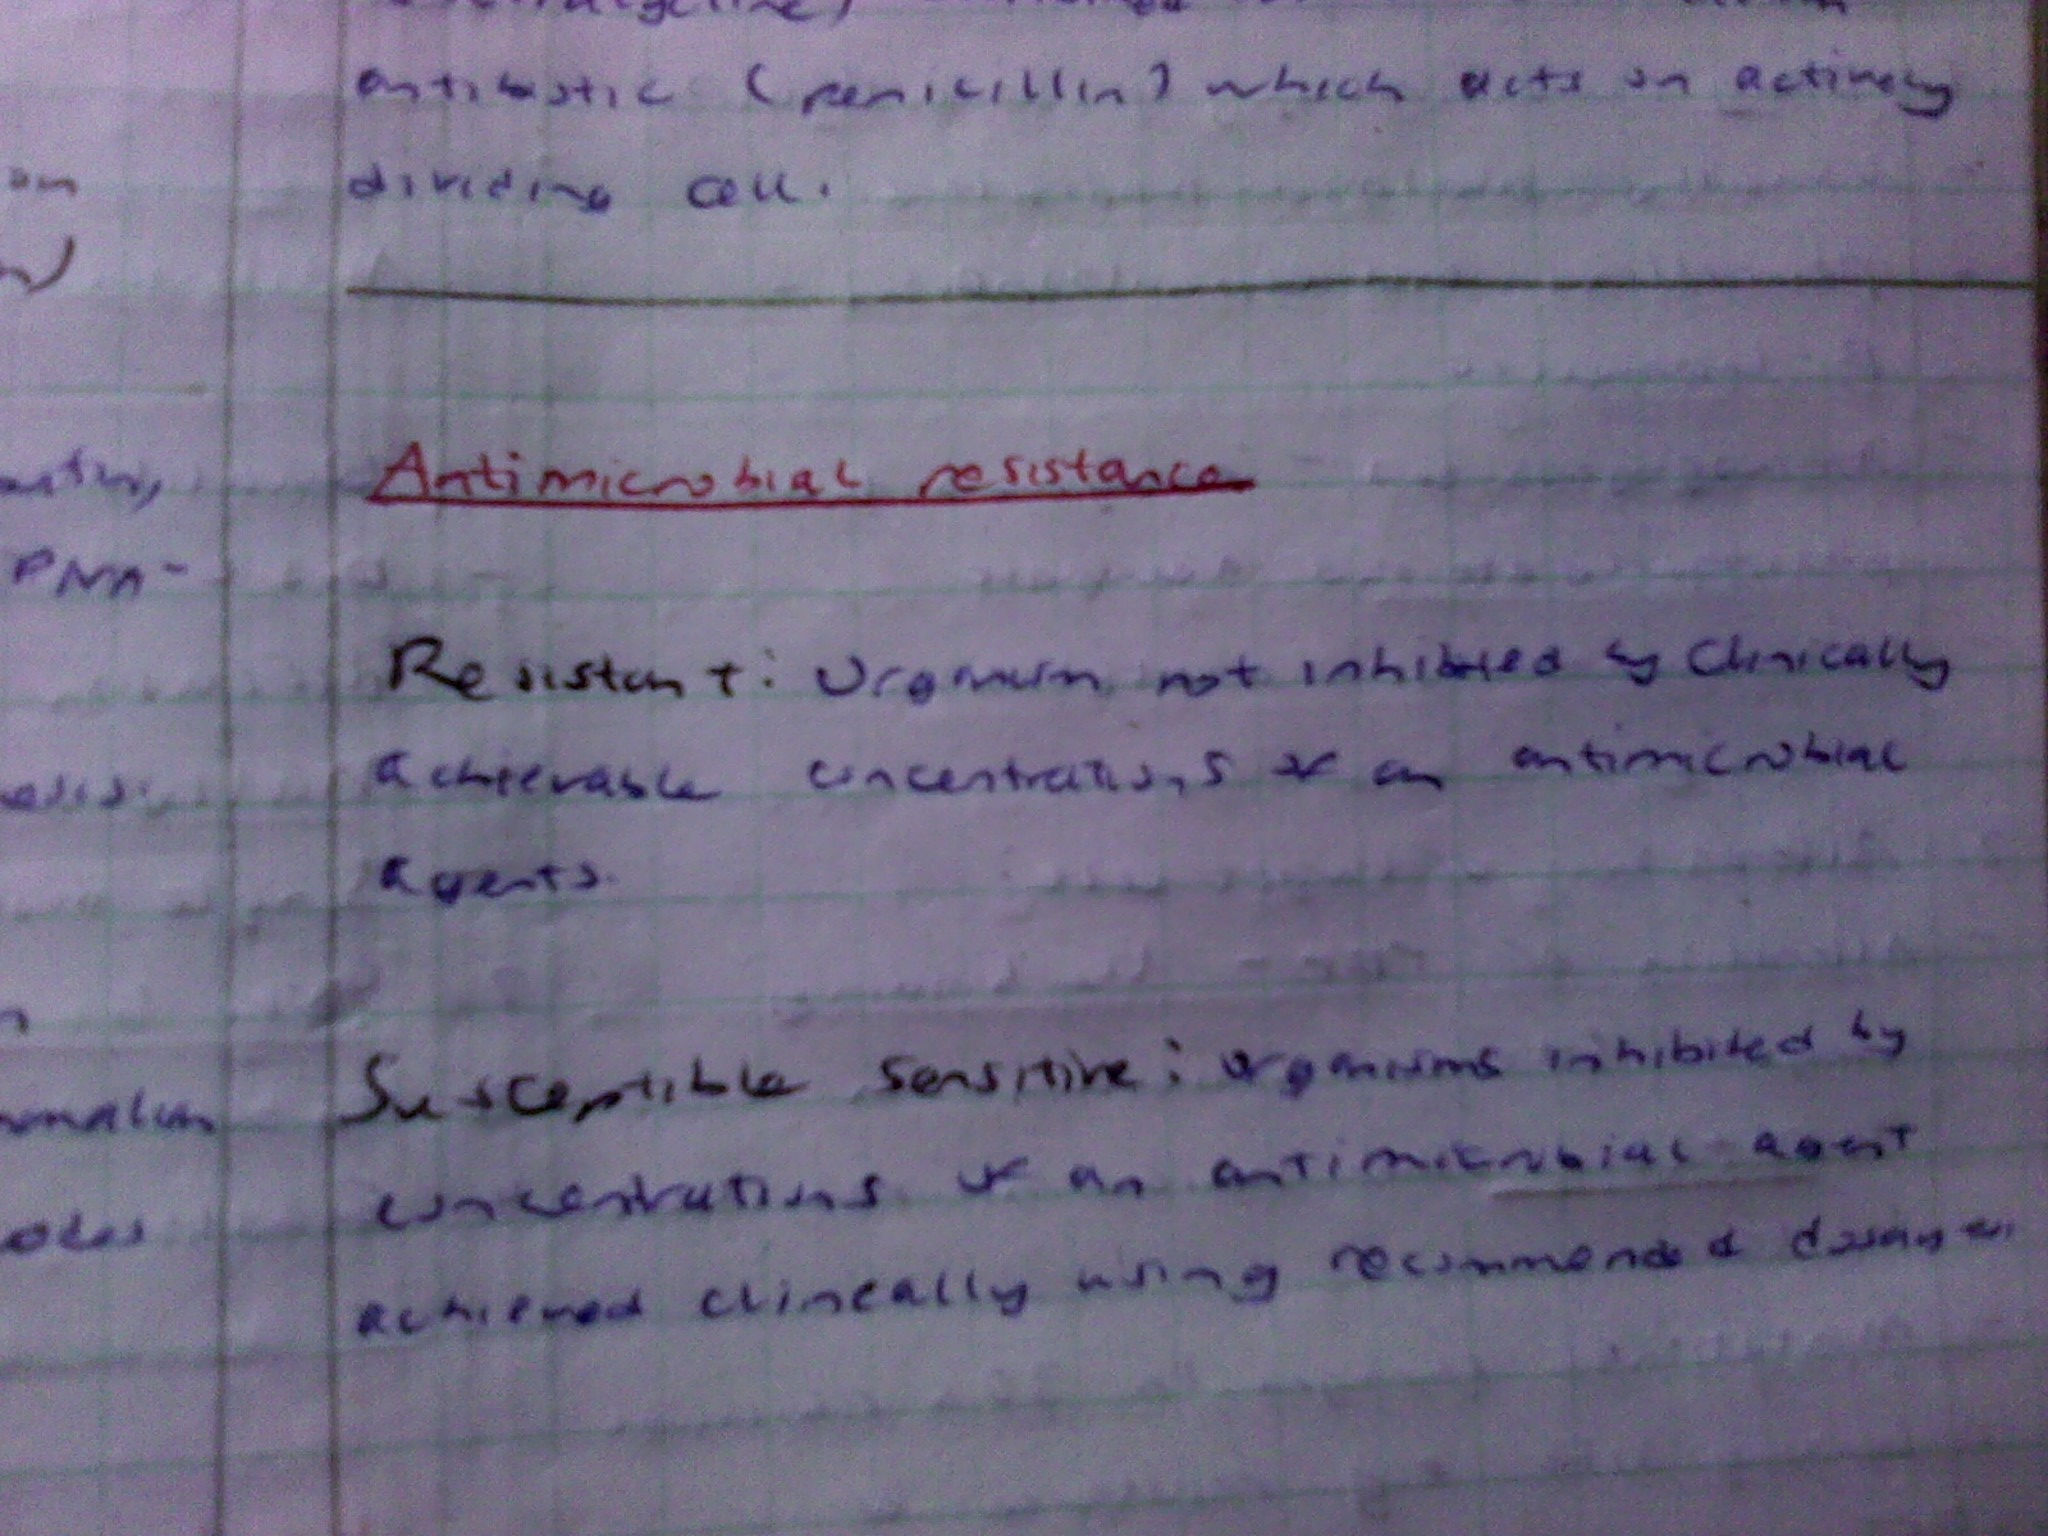 antibiotic (penicillin) which acts on actively
dividing cell.
Antimicrobial resistance
Resistant: Organism not inhibited by Clinically
achievable concentrations of an antimicrobial
agents.
Susceptible sensitive: organisms inhibited by
concentrations of an antimicrobial agent
achieved clinically using recommended dosages.